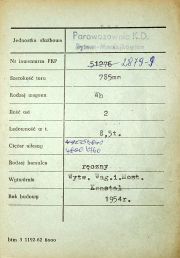 Jednostka służbowa Parowozownia K.D.
Nr inwentarza PKP 51296 2879-9
Szerokość toru 785mm
Rodzaj wagonu Wh
Ilość osi 2
Ładowność w t. 8,5t.
Ciężar własny
Rodzaj hamulca ręczny
Wytwórnia Wytw. Wag. i Most.
Konstal
Rok budowy 1954r.